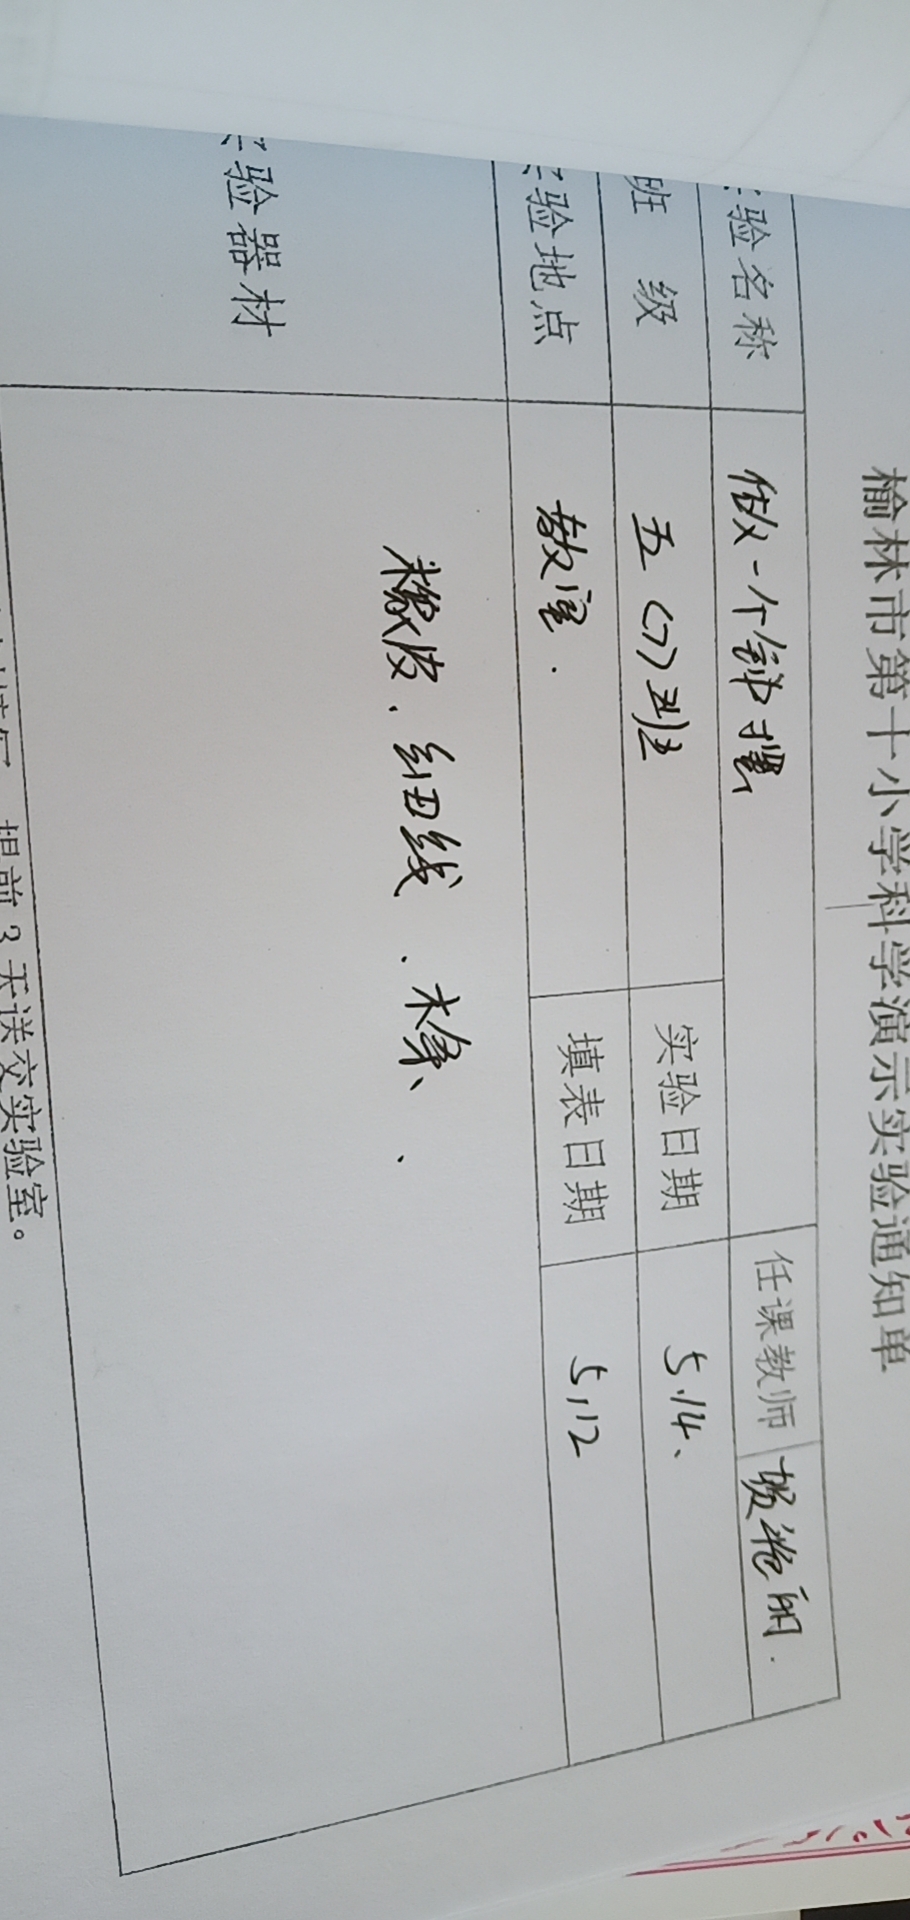 榆林市第十小学科学演示实验通知单
实验名称 做一个钟摆 任课教师
班 级 五(7)班 实验日期 5.14、
实验地点 教室. 填表日期 5,12
实验器材 橡皮、细线、木条、、
提前3天送交实验室。